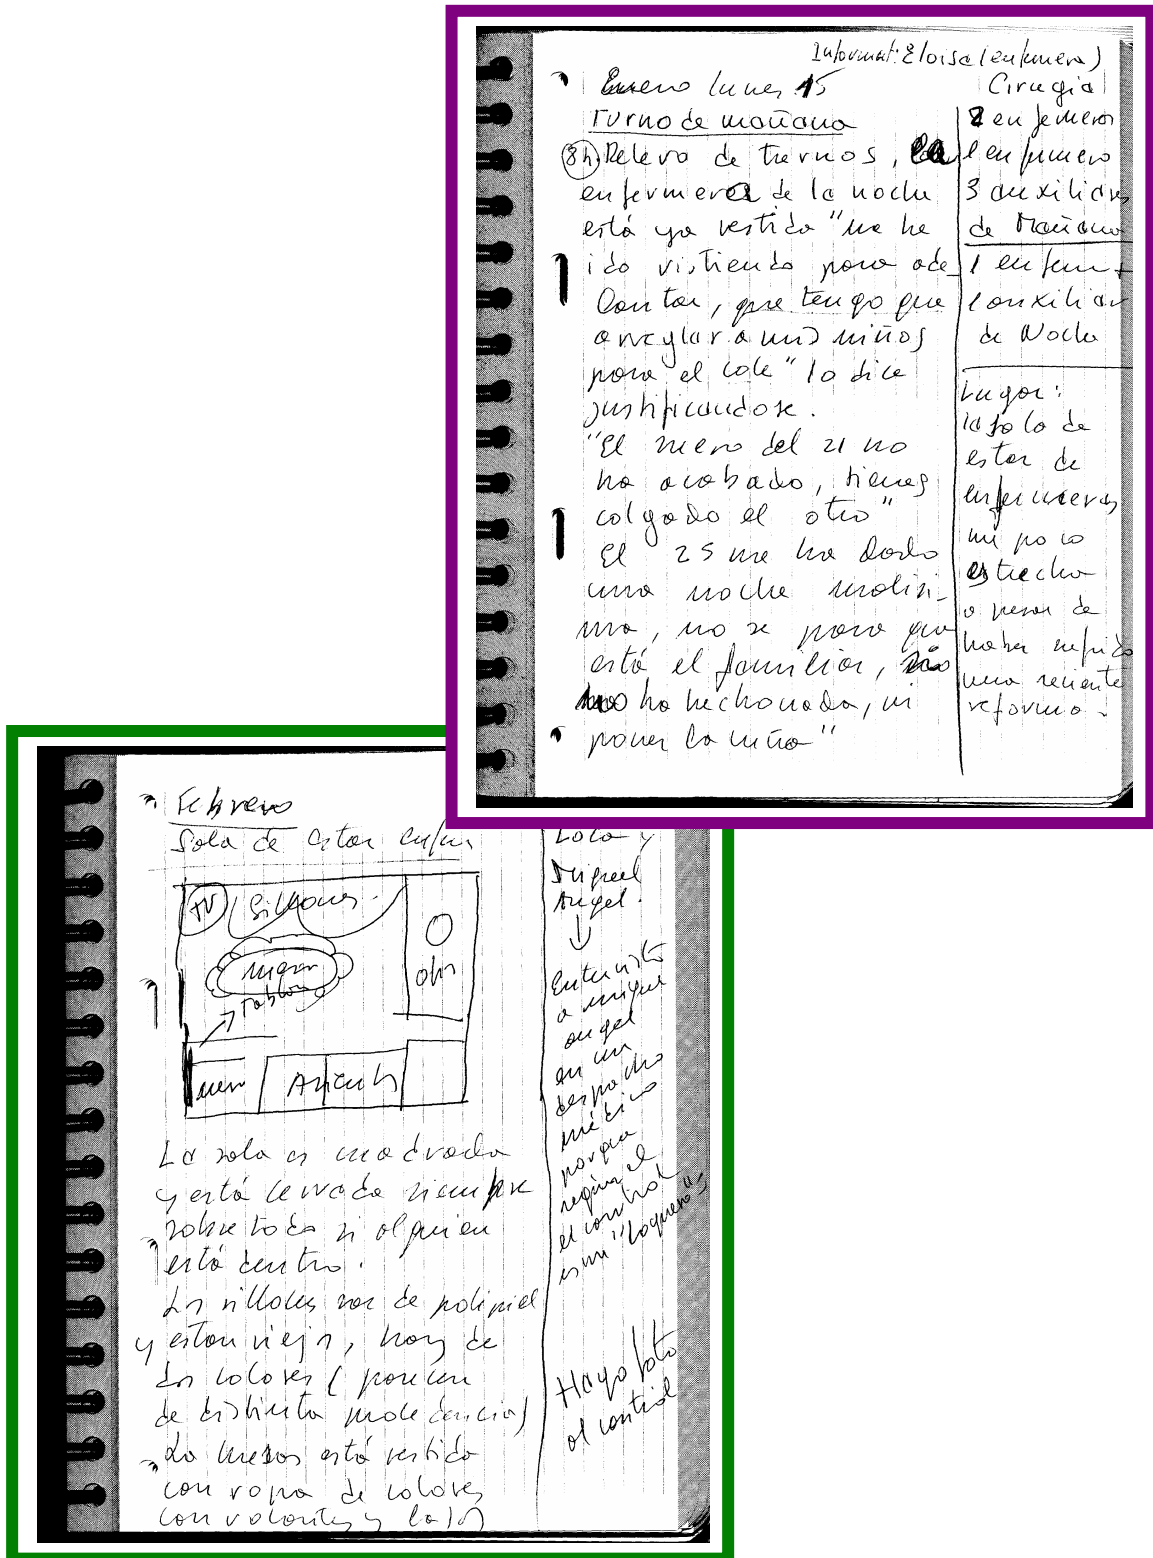 Informat: Eloisa (enfermera)
Enero lunes 15
Cirugía
Turno de mañana
8h Relevo de turnos, la
enfermera de la noche
está ya vestida "me he
ido vistiendo para ade-
lantar, que tengo que
arreglar a mis niños
para el cole" lo dice
justificandose.
"El suero del 21 no
ha acabado, tienes
colgado el otro"
El 25 me ha dado
una noche malisi-
ma, no se para que
está el familiar,
no ha hecho nada, ni
poner la cuña"
2 enfermeras
1 enfermero
3 auxiliares
de Mañana
1 enferm +
1 auxiliar
de Noche
Lugar:
la sala de
estar de
enfermeras
un poco
estrecha
a pesar de
haber sufrido
una reciente
reforma.
Febrero
Sala de estar enferm
TV
Sillones
mesa
Tablon
Armarios
La sala es cuadrada
y está cerrada siempre
sobre todo si alguien
está dentro.
Los sillones son de polipiel
y estan viejos, hay de
dos colores (parecen
de distinta procedencia)
La mesa está vestida
con ropa de colores
con volantes y lazos
Lola y
Miguel
Angel.
Entrevisto
a miguel
angel
en un
despacho
médico
porque
según el
el control
es un "loquero"
Hago foto
al control